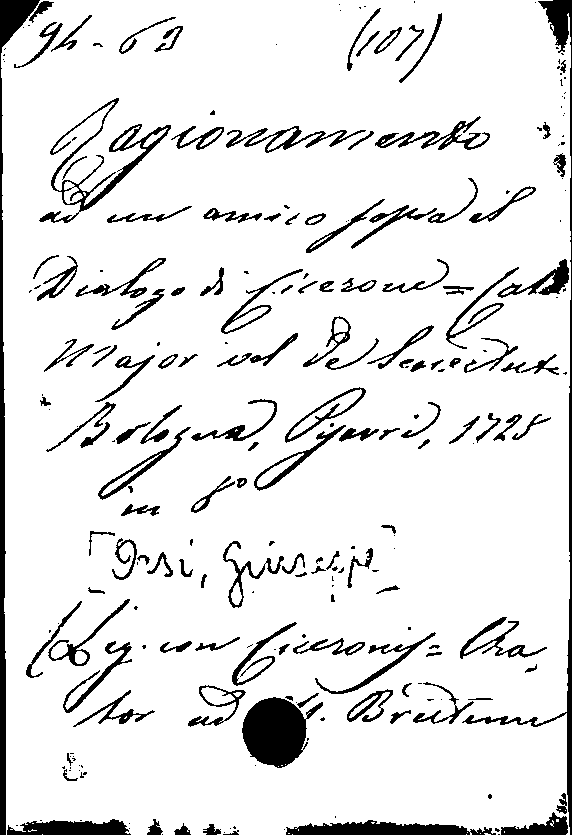 94 - 63 (107)
Ragionamento
ad un amico sopra il
Dialogo di Cicerone = Cato
Major vel de Senectute
Bologna, Pisarri, 1728
in 8o
[Orsi, Giuseppe]
(Leg. con Ciceronis = Ora-
tor ad M. Brutum